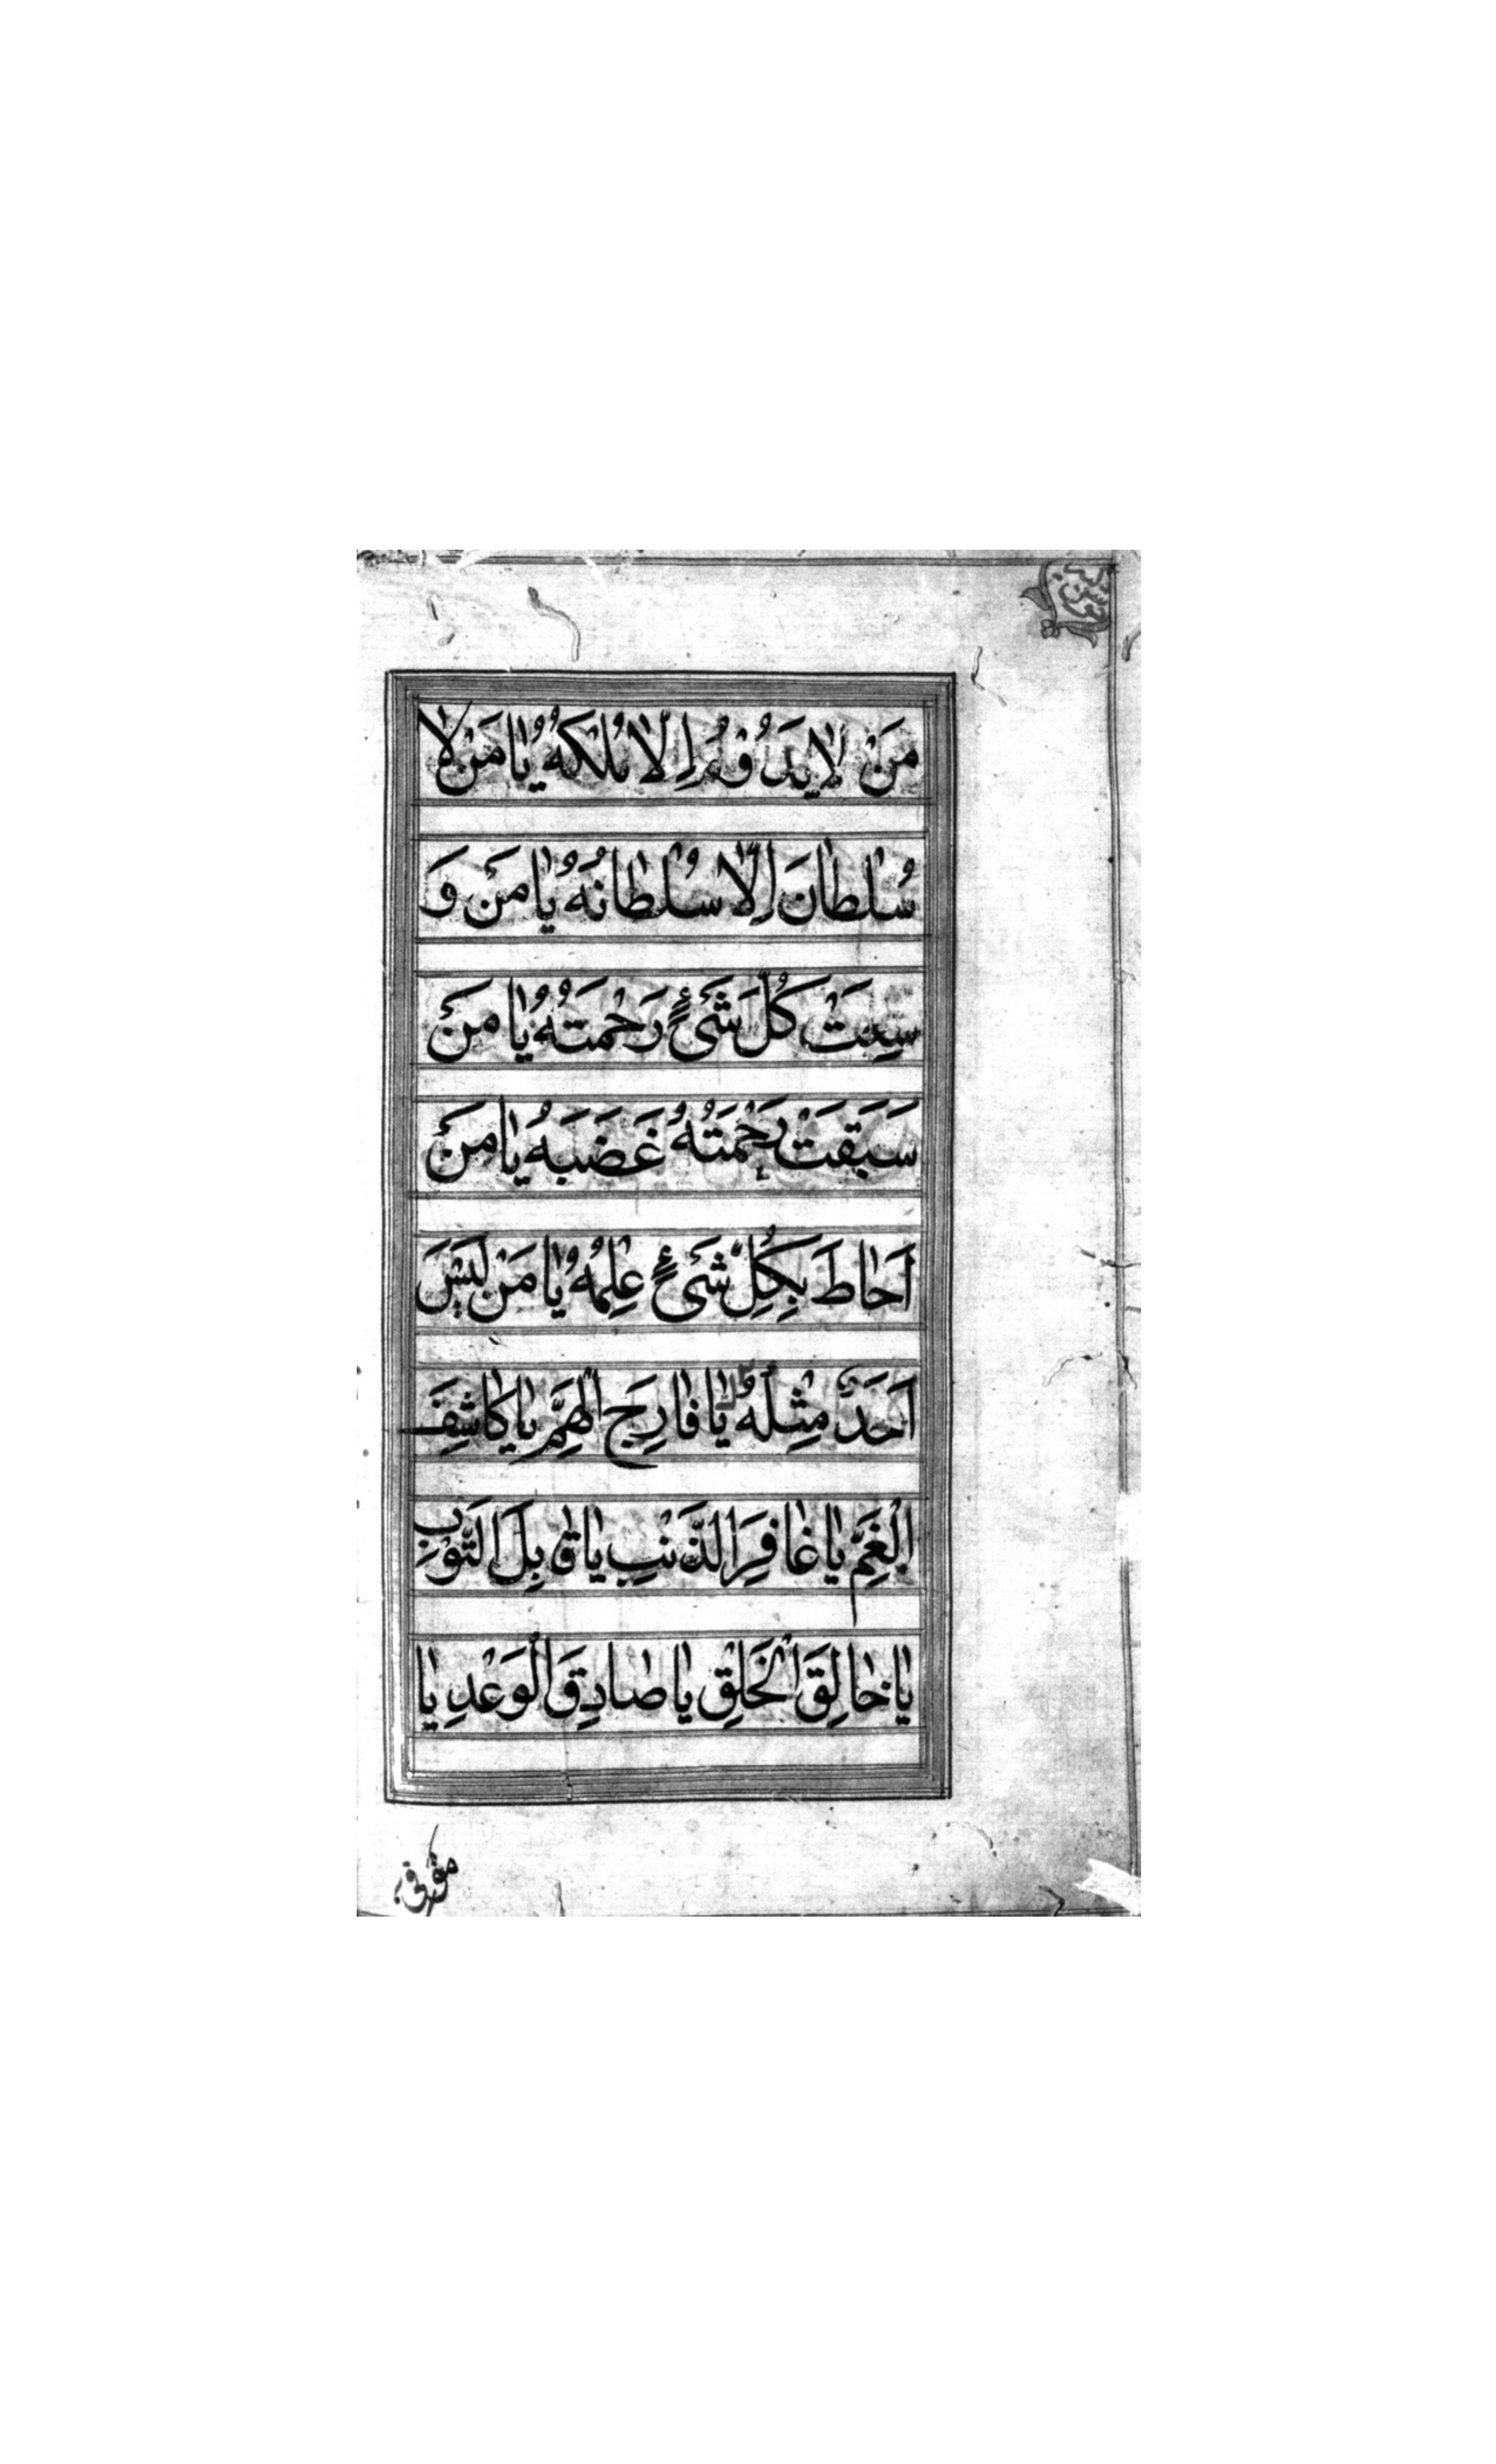 مَنْ لَا يَدُوْمُ اِلَّا مُلْكُهُ يَا مَنْ لَا
سُلْطَانَ اِلَّا سُلْطَانُهُ يَا مَنْ وَ
سِعَتْ كُلَّ شَیْءٍ رَحْمَتُهُ يَا مَنْ
سَبَقَتْ رَحْمَتُهُ غَضَبَهُ يَا مَنْ
اَحَاطَ بِكُلِّ شَیْءٍ عِلْمُهُ يَا مَنْ لَيْسَ
اَحَدٌ مِثْلَهُ يَا فَارِجَ الْهَمِّ يَا كَاشِفَ
الْغَمِّ يَا غَافِرَ الذَّنْبِ يَا قَابِلَ التَّوْبِ
يَا خَالِقَ الْخَلْقِ يَا صَادِقَ الْوَعْدِ يَا